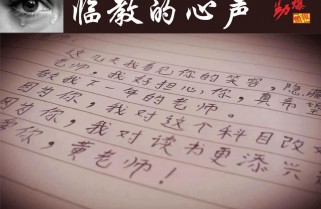 临教的心声
这几天我看见你的笑容，隐藏
老师。我好担心你，真希望
教我下一年的老师。
因为你，我对这个科目改
因为你，我对读书更添兴
你，黄老师！